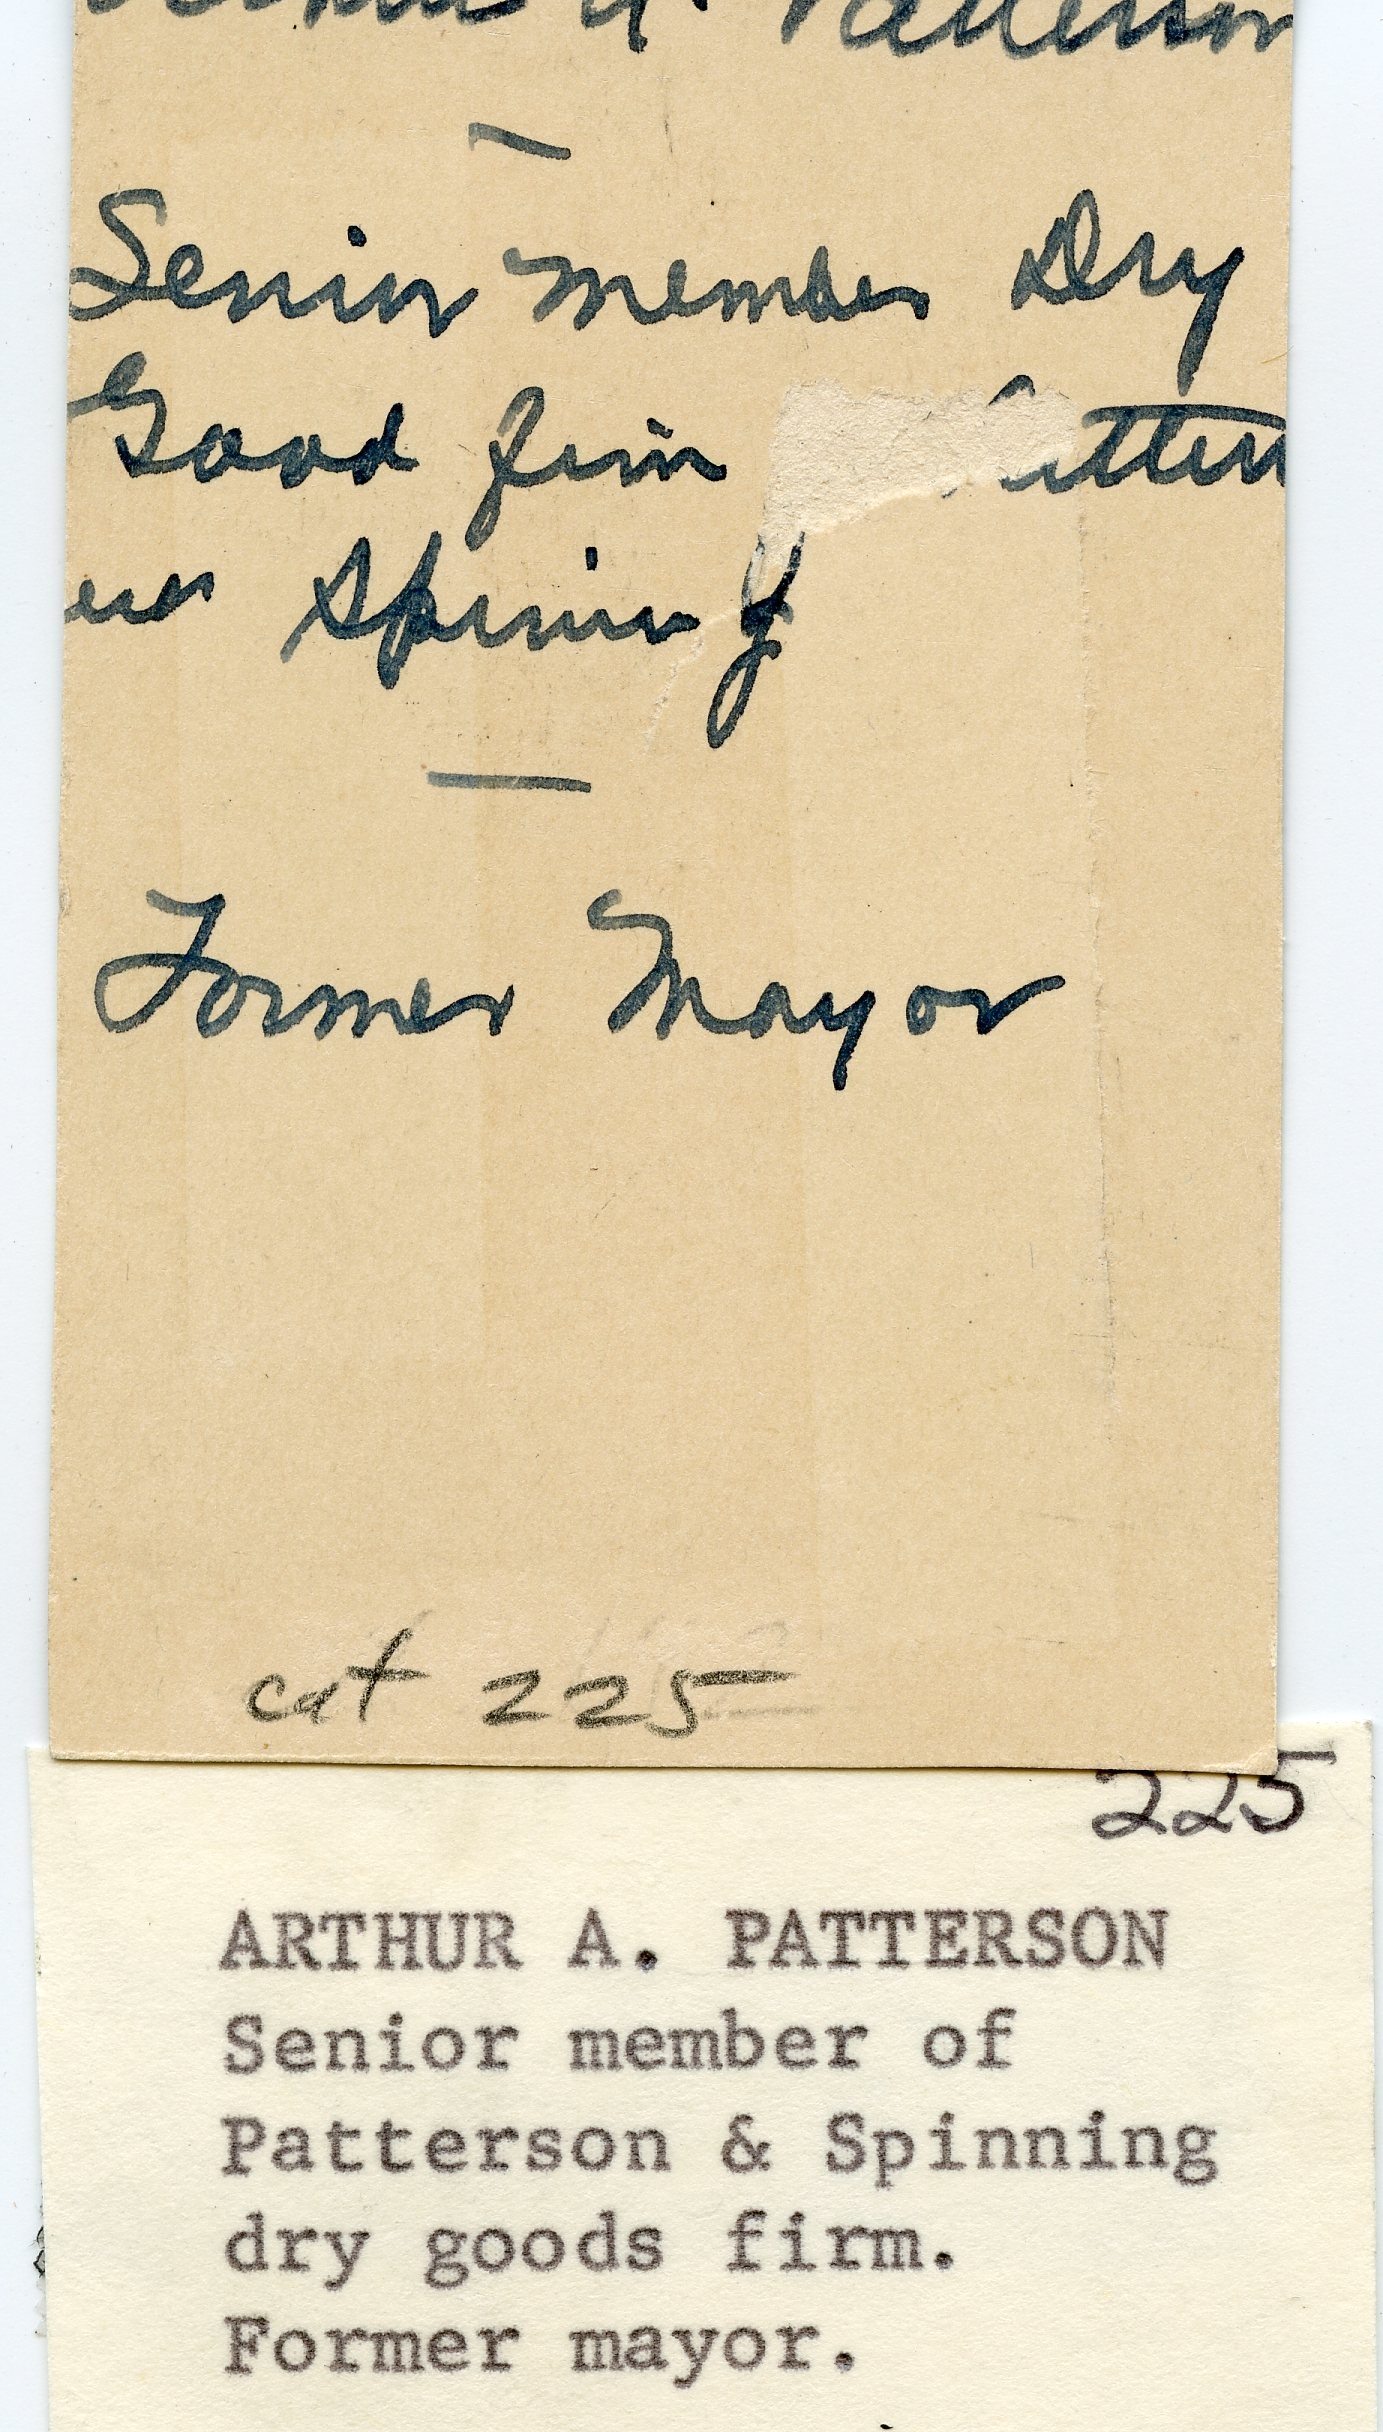 A. Patterson
Senior member Dry
Good firm
Spining
Former Mayor
cat 225
225
ARTHUR A. PATTERSON
Senior member of
Patterson & Spinning
dry goods firm.
Former mayor.